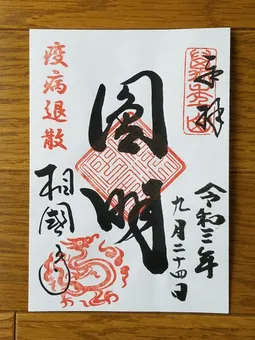 奉拝
令和三年
九月二十四日
圓明
疫病退散
相國寺